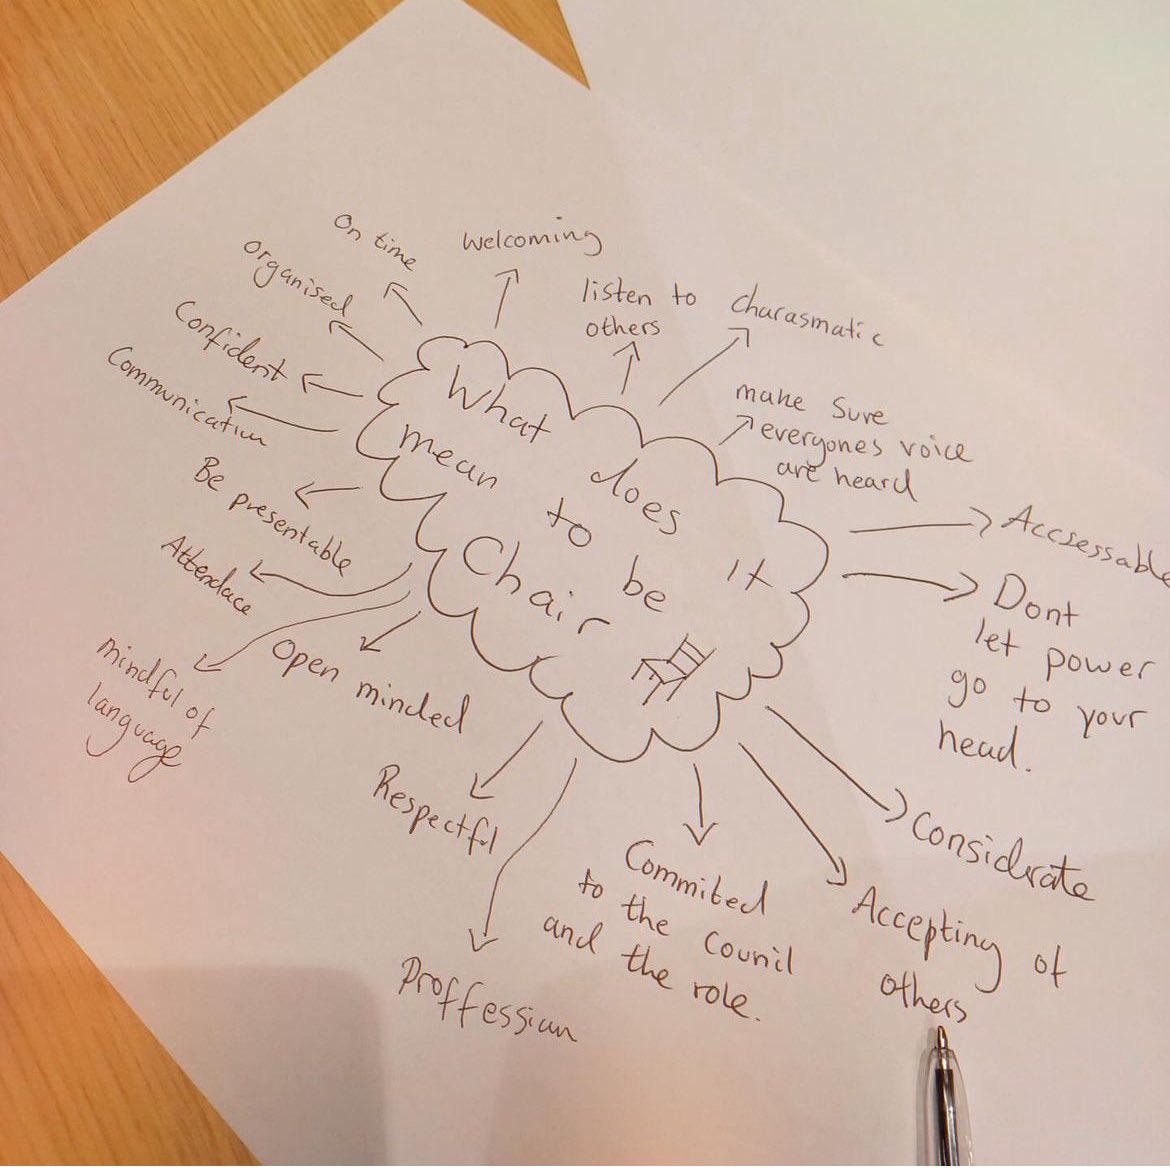 What does it
mean to be
Chair
On time
organised
Confident
Communication
Be presentable
Attendace
mindful of
language
Open minded
Respectful
Proffession
Commited
to the Counil
and the role.
Accepting of
others
Considrate
Dont
let power
go to your
head.
Accsessable
make sure
everyones voice
are heard
charasmatic
listen to
others
Welcoming